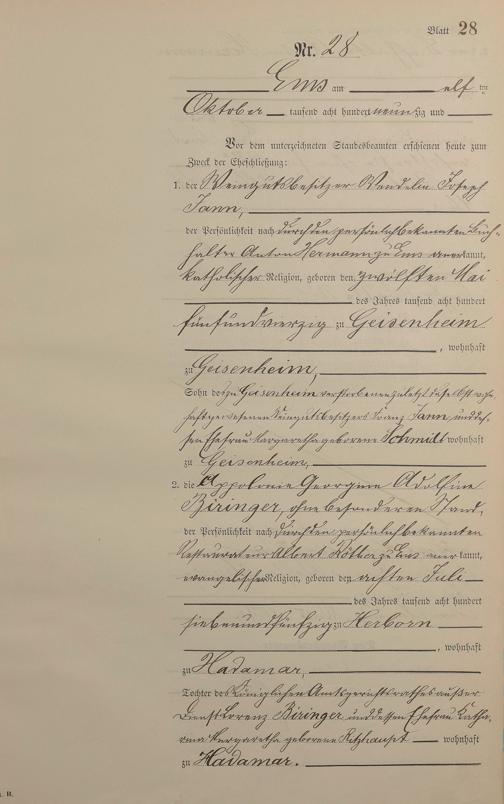 Blatt 28
Nr. 28
Ems am elf ten
Oktober tausend acht hundert neunzig und
Vor dem unterzeichneten Standesbeamten erschienen heute zum
Zweck der Eheschließung:
1. der Weingutsbesitzer Wendelin Joseph
Jann,
der Persönlichkeit nach durch den persönlich bekannten Buch-
halter Anton Hermann zu Ems anerkannt,
katholischer Religion, geboren den zwölften Mai
des Jahres tausend acht hundert
fünfundvierzig zu Geisenheim
, wohnhaft
zu Geisenheim,
Sohn des zu Geisenheim verstorbenen zuletzt daselbst wohn-
haft gewesenen Weingutsbesitzers Jann, und des-
sen Ehefrau Margaretha geborene Schmidt wohnhaft
zu Geisenheim,
2. die Appolonie Georgine Adolfine
Biringer, ohne besonderen Stand,
der Persönlichkeit nach durch den persönlich bekannten
Restaurateur Albert zu Ems anerkannt,
evangelischer Religion, geboren den achten Juli
des Jahres tausend acht hundert
siebenundfünfzig zu Herborn
, wohnhaft
zu Hadamar,
Tochter des Königlichen Amtsgerichtsrathes außer
Dienst Lorenz Biringer und dessen Ehefrau Katha-
rina Margaretha geborene wohnhaft
zu Hadamar.